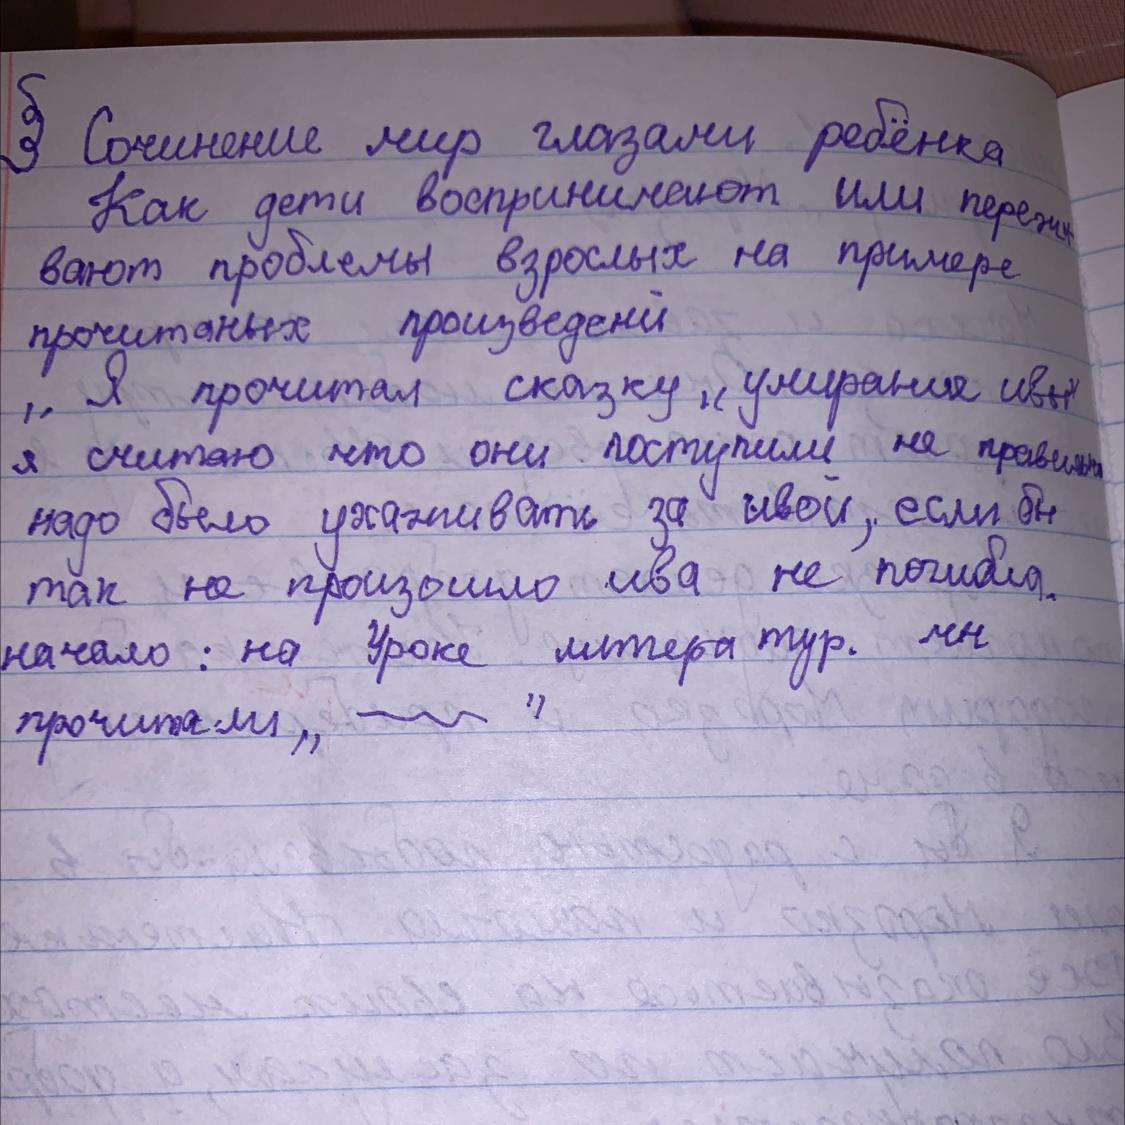 Сочинение мир глазами ребёнка
Как дети воспринимают или пережи
вают проблемы взрослых на примере
прочитаных произведений
„ Я прочитал сказку „умирания ивы"
я считаю что они поступили не правильно
надо было ухаживать за ивой, если бы
так не произошло ива не погибла.
начало: на Уроке литератур. мы
прочитали „ "